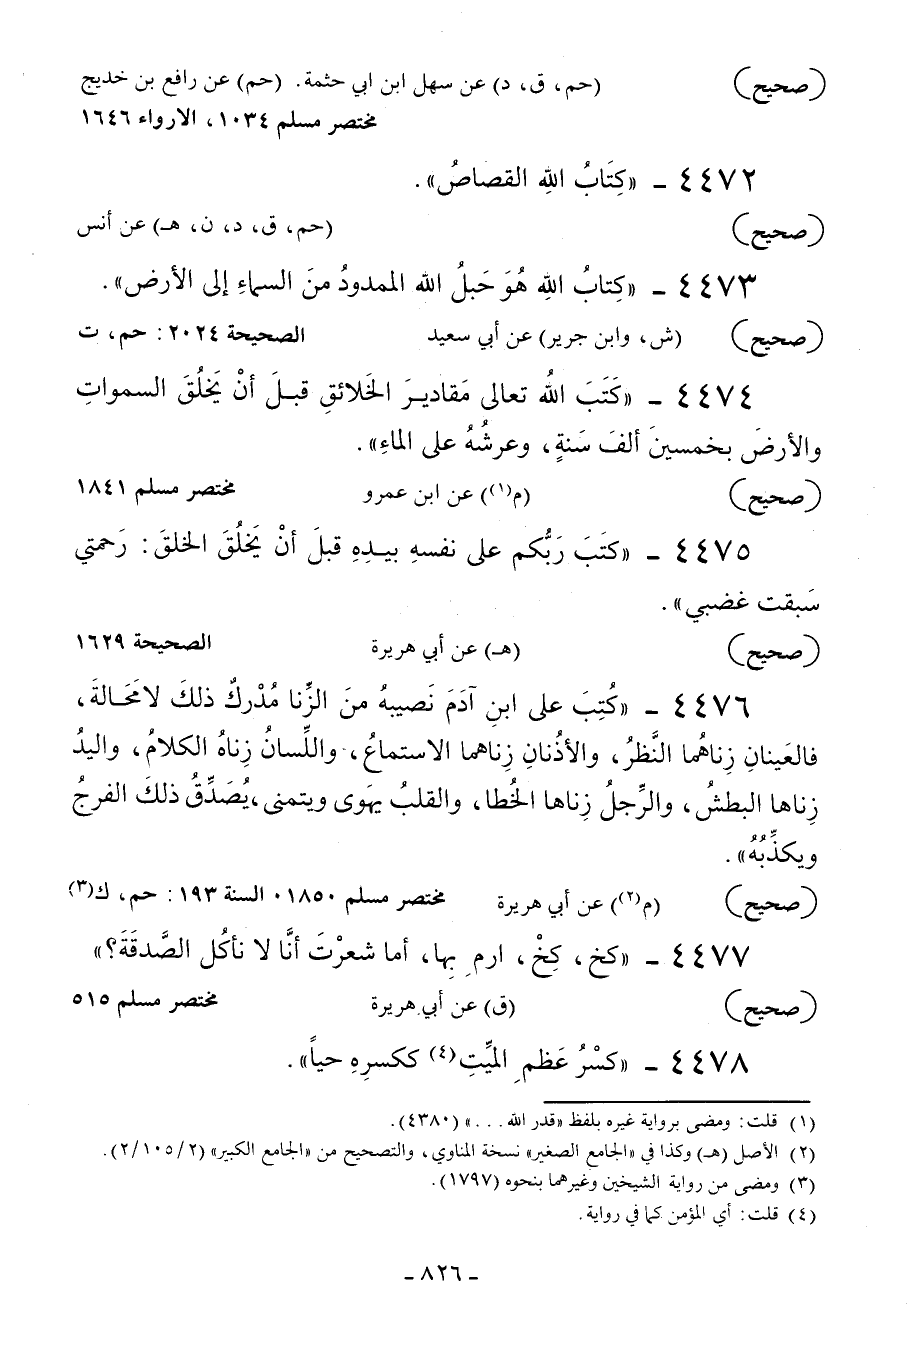 (صحيح) (حم، ق، د) عن سهل ابن ابي حثمة. (حم) عن رافع بن خديج
مختصر مسلم ١٠٣٤، الارواء ١٦٤٦
٤٤٧٢ - «كِتَابُ اللهِ القصاصُ».
(صحيح) (حم، ق، د، ن، هـ) عن أنس
٤٤٧٣ - «كِتابُ اللهِ هُوَ حَبلُ الله الممدودُ منَ السماءِ إلى الأرض».
(صحيح) (ش، وابن جرير) عن أبي سعيد الصحيحة ٢٠٢٤: حم، ت
٤٤٧٤ - «كَتَبَ اللهُ تعالى مَقاديرَ الخَلائقِ قبلَ أنْ يَخلُقَ السمواتِ
والأرضَ بخمسينَ ألفَ سَنةٍ، وعرشُهُ على الماءِ».
(صحيح) (م(١)) عن ابن عمرو مختصر مسلم ١٨٤١
٤٤٧٥ - «كَتَبَ رَبُّكم على نفسهِ بيدِهِ قبلَ أنْ يَخلُقَ الخلقَ: رَحمتي
سَبقت غضبي».
(صحيح) (هـ) عن أبي هريرة الصحيحة ١٦٢٩
٤٤٧٦ - «كُتِبَ على ابنِ آدَمَ نَصيبهُ منَ الزِّنا مُدْركٌ ذلكَ لامَحَالةَ،
فالعَينانِ زِناهُما النَّظرُ، والأذُنانِ زِناهما الاستماعُ، واللِّسانُ زِناهُ الكلامُ، واليدُ
زِناها البطشُ، والرِّجلُ زِناها الخُطا، والقلبُ يهَوى ويتمنى، يُصَدِّقُ ذلكَ الفرجُ
ويكذِّبُهُ».
(صحيح) (م(٢)) عن أبي هريرة مختصر مسلم ١٨٥٠، السنة ١٩٣: حم، ك(٣)
٤٤٧٧ - «كخ، كِخْ، ارمِ بِها، أما شعرْتَ أنَّا لا نأكُل الصَّدقَةَ؟»
(صحيح) (ق) عن أبي هريرة مختصر مسلم ٥١٥
٤٤٧٨ - «كسْرُ عَظمِ الميِّتِ(٤) ككسرِهِ حياً».
(١) قلت: ومضى برواية غيره بلفظ «قدر الله . . .» (٤٣٨٠).
(٢) الأصل (هـ) وكذا في «الجامع الصغير» نسخة المناوي، والتصحيح من «الجامع الكبير» (٢/١٠٥/٢).
(٣) ومضى من رواية الشيخين وغيرهما بنحوه (١٧٩٧).
(٤) قلت: أي المؤمن كما في رواية.
- ٨٢٦ -